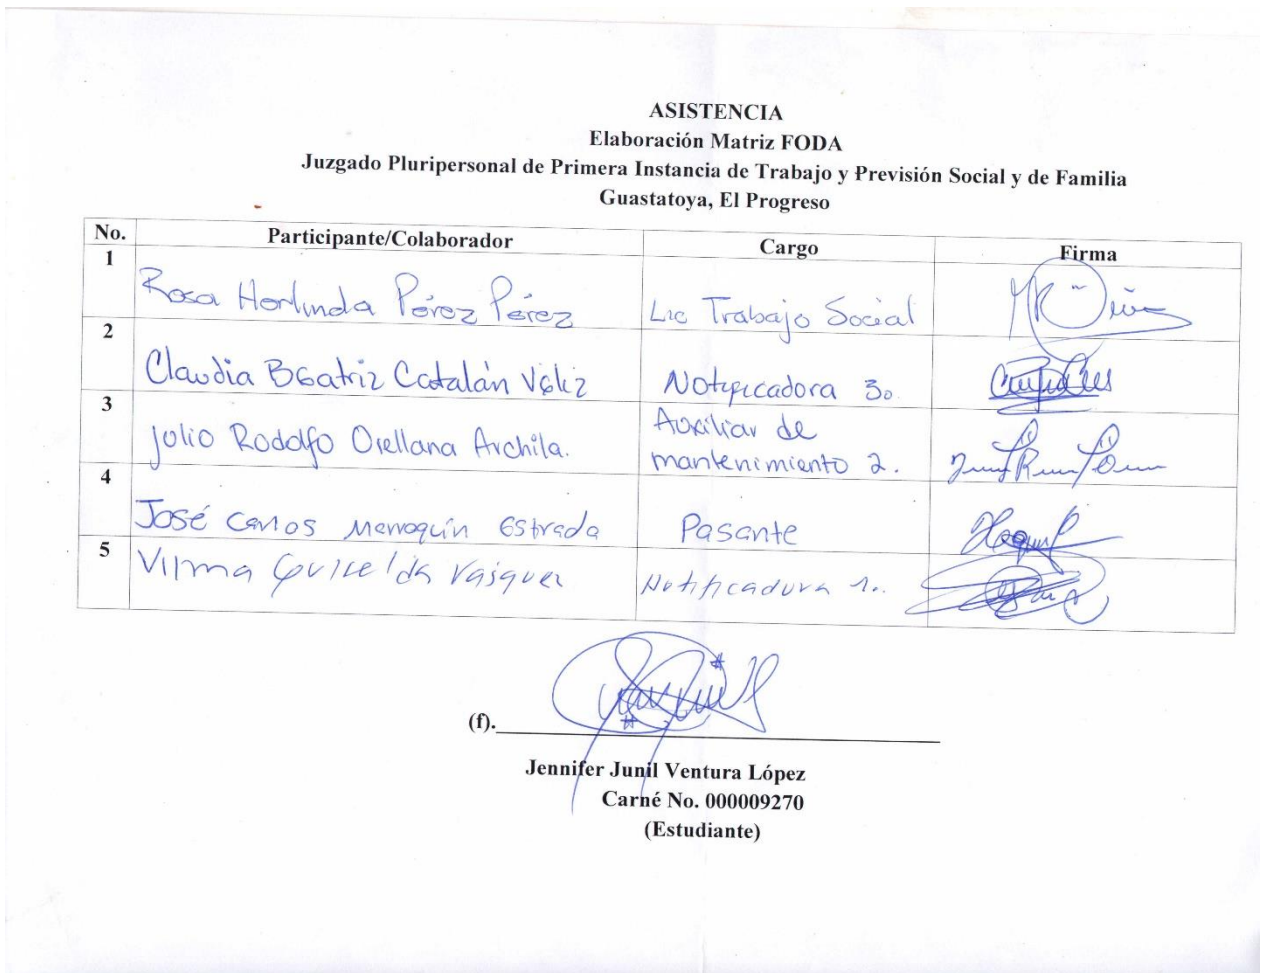 ASISTENCIA
Elaboración Matriz FODA
Juzgado Pluripersonal de Primera Instancia de Trabajo y Previsión Social y de Familia
Guastatoya, El Progreso
No. Participante/Colaborador Cargo Firma
1 Rosa Herlinda Pérez Pérez Lic Trabajo Social
2 Claudia Beatriz Catalán Véliz Notificadora 3o.
3 Julio Rodolfo Orellana Archila. Auxiliar de
mantenimiento 2.
4 José Carlos Marroquín Estrada Pasante
5 Vilma Vásquez Notificadora 1o.
(f).
Jennifer Junil Ventura López
Carné No. 000009270
(Estudiante)